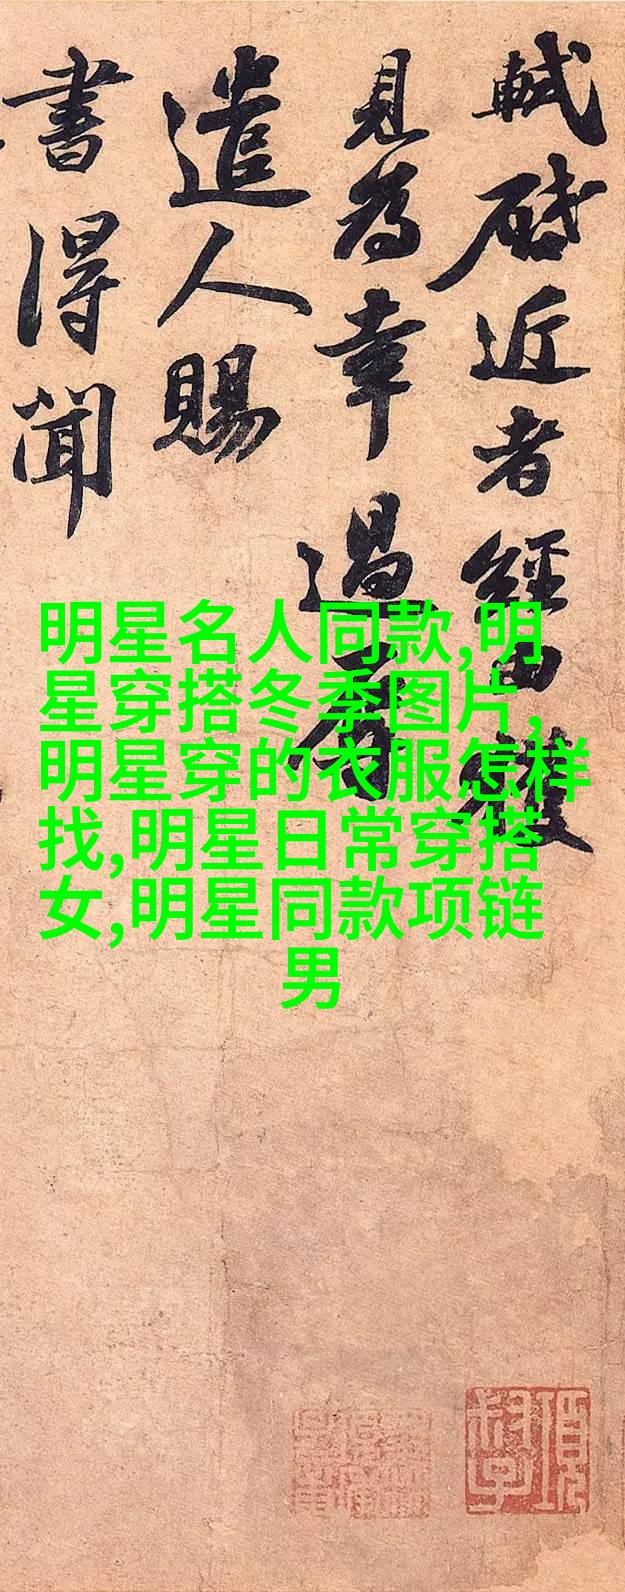 軾啓近者經由獲
見為幸過辱
遣人賜
書得聞
明星名人同款,明
星穿搭冬季图片,
明星穿的衣服怎样
找,明星日常穿搭
女,明星同款项链
男